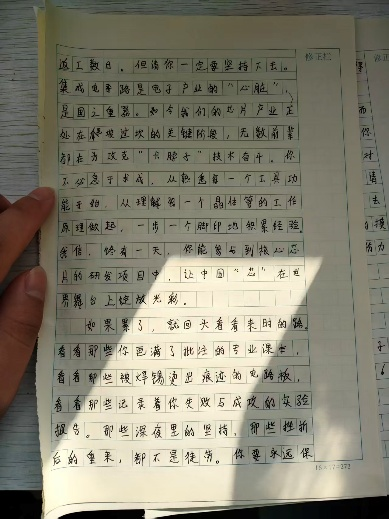 修正栏
返工数日。但请你一定要坚持下去。
集成电路是电子产业的“心脏”，
是国之重器。如今我们的芯片产业正
处在爬坡过坎的关键阶段，无数前辈
都在为攻克“卡脖子”技术奋斗。你
不必急于求成，从熟悉每一个工具功
能开始，从理解每一个晶体管的工作
原理做起，一步一个脚印地积累经验。
我信，终有一天，你能参与到核心芯
片的研发项目中，让中国“芯”在世
界舞台上绽放光彩。
如果累了，就回头看看来时的路。
看看那些你写满了批注的专业课书，
看看那些被焊锡烫出痕迹的电路板，
看看那些记录着你失败与成功的实验
报告。那些深夜里的坚持，那些挫折
后的重来，都不是徒劳。你要永远保